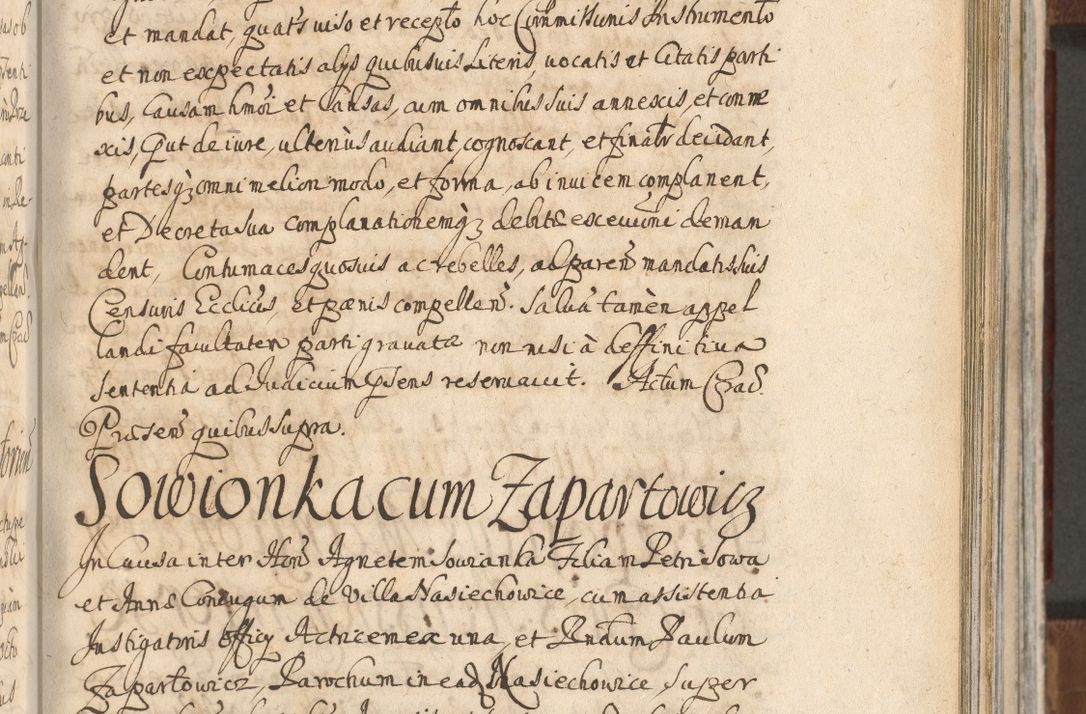 et mandat, quat͂s uiso et recepto hoc Com̃missionis Instrumento
et non expectatis alys quibusuis Literis, uocatis et Citatis parti
bus, Causam hm̃oi et Causas, cum omnibus suis annexis, et conne
xis, Prut de iure, ulterius audiant, cognoscant, et finalr̃ decidant,
partesq; omni meliori modo, et forma, ab inuicem complanent,
et Decreta sua complanationemq; debitæ execuu͂oni deman
dent, Contumaces quosuis ac rebelles, ad paren̄ mandatis suis
Censuris Ecclicis, et pænis compellen̄. Salua tamèn appel
landi facultaten parti grauatæ non nisi à deffinitiua
sententia ad Iudicium P̃sens reseruauit. Actum Crac̄.
Præsen̄ quibus supra.
Sowionka cum Zapartowicz
In Causa inter Hon̄ Agnetem Sowianka Filiam Petri Sowa
et Annæ Coniugum de Villa Nasiechowice, cum assistentia
Instigatoris officy Actricem ex una, et Rndum Paulum
Zapartowicz, Parochum in ead Nasiechowice, super